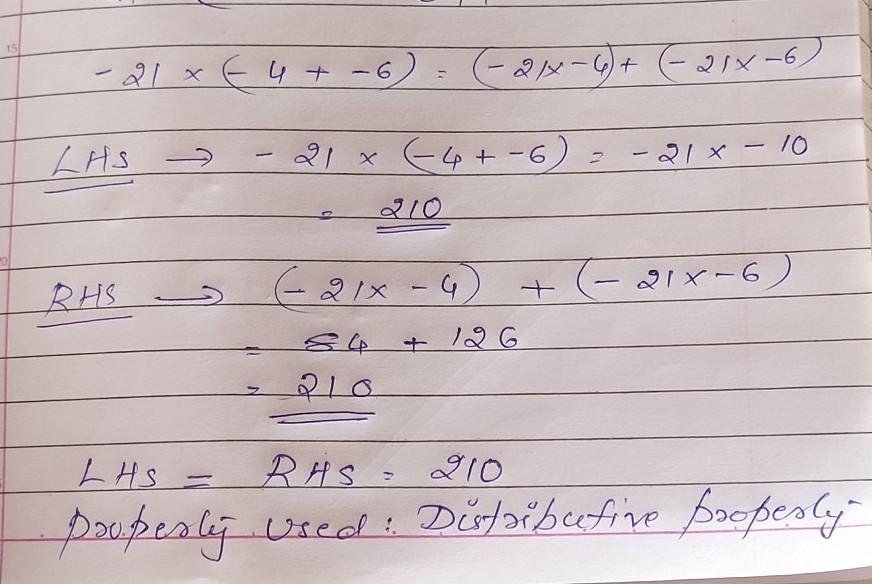 15
- 21 × (- 4 + -6) = (- 21x - 4) + (- 21x - 6)
LHS → - 21 × (-4 + -6) = - 21 x - 10
= 210
RHS → (- 21x - 4) + (- 21x - 6)
= 84 + 126
= 210
LHS = RHS = 210
Property Used : Distributive property